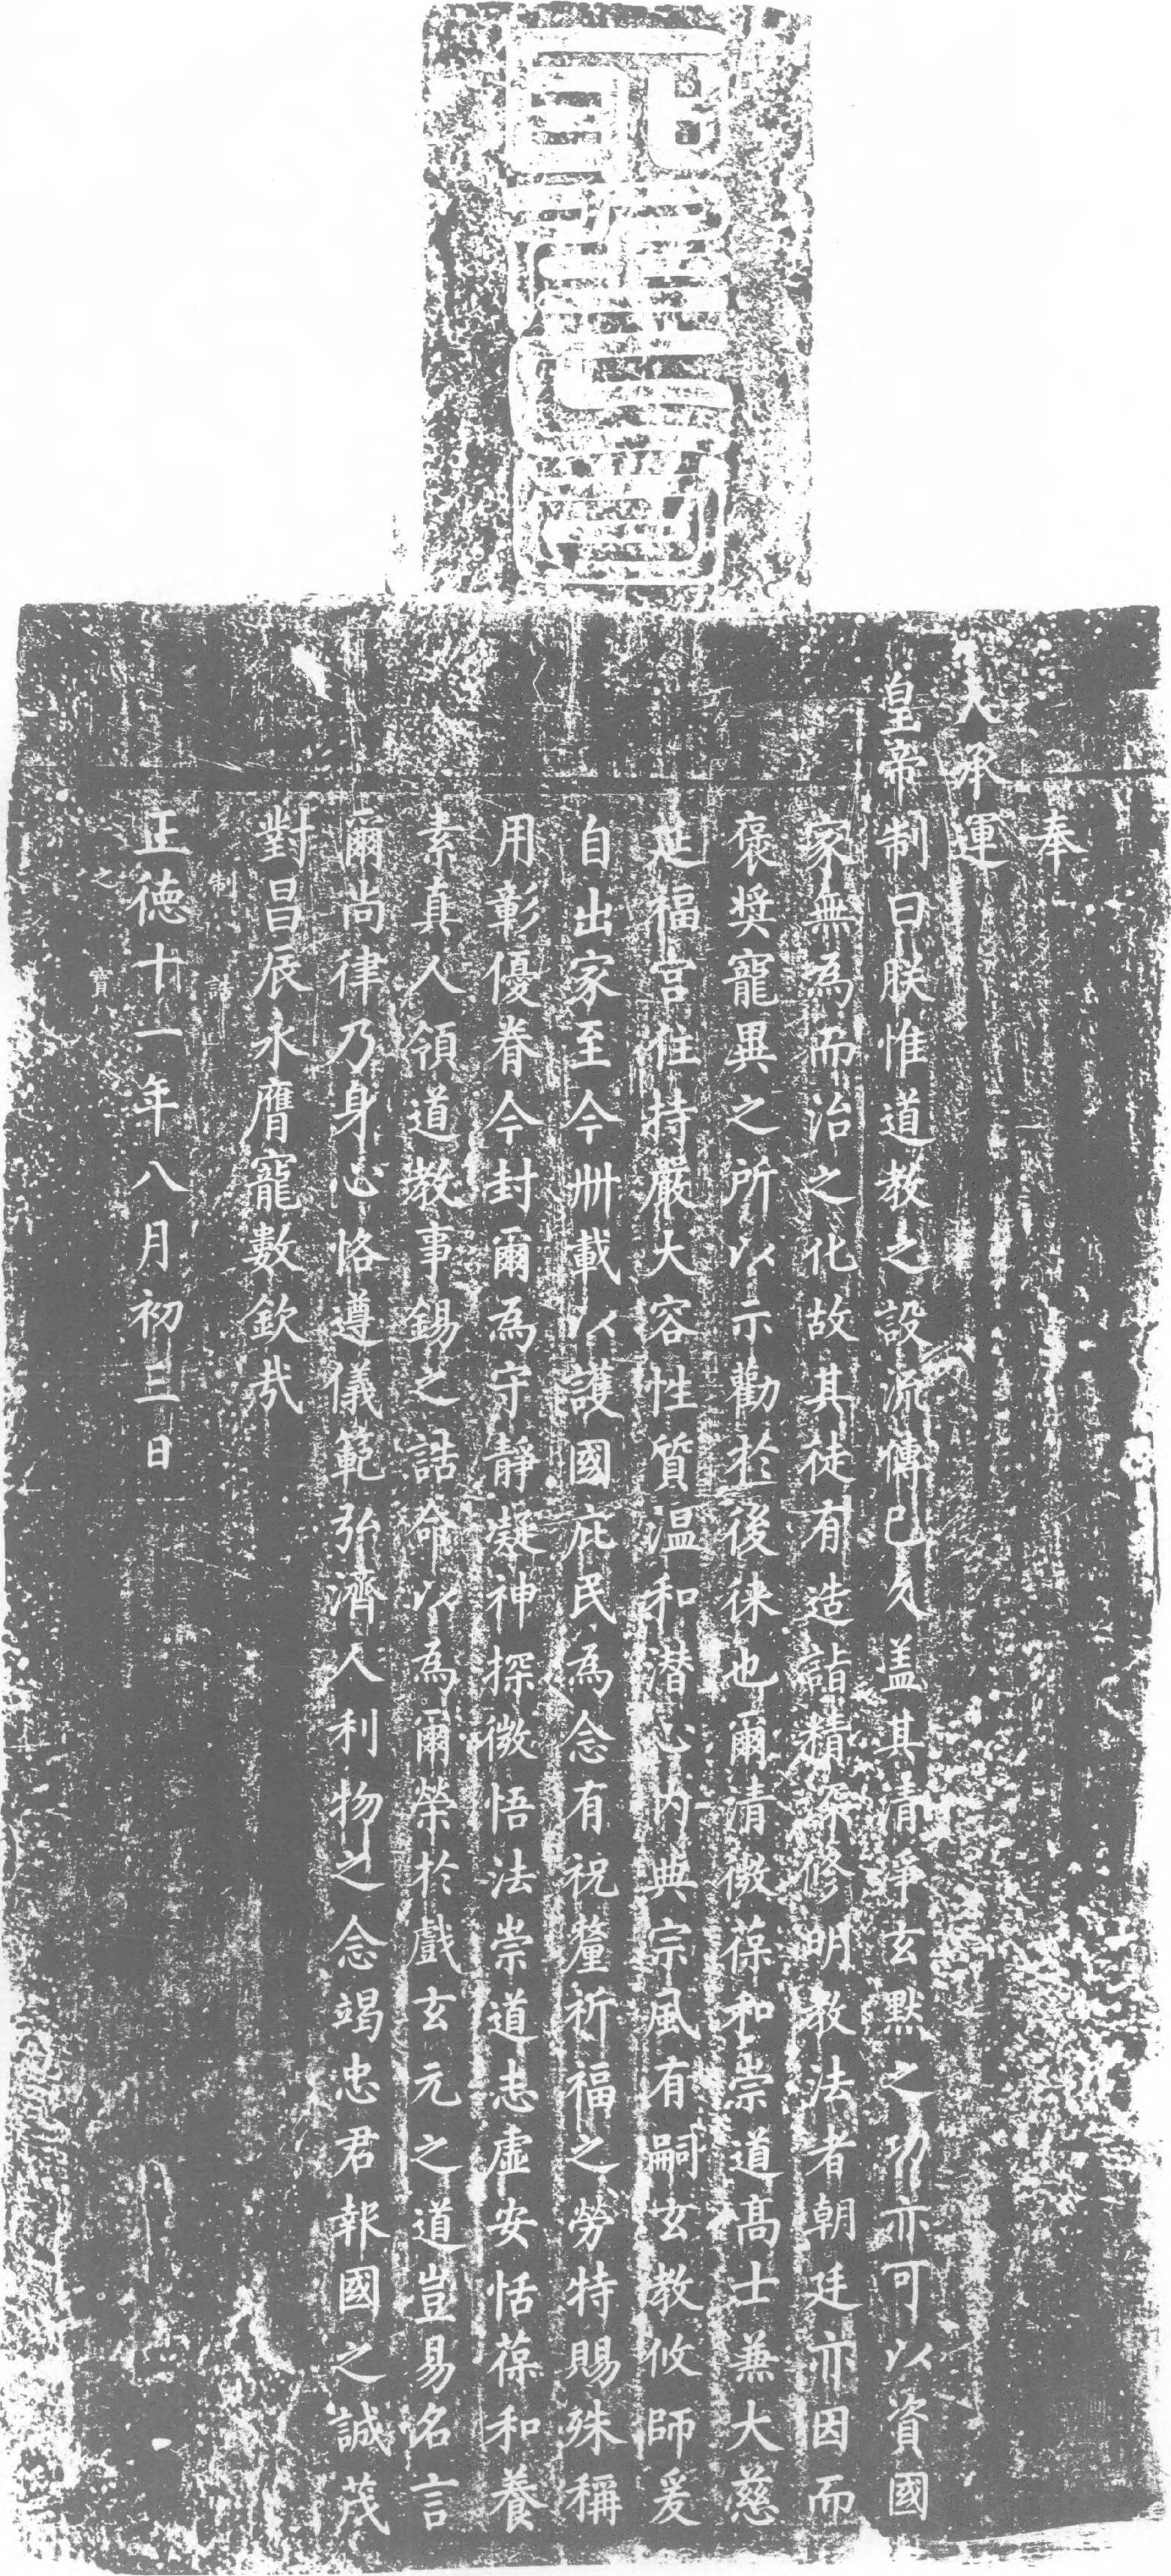 聖旨
奉
天承運
皇帝制曰朕惟道教之設流傳已久盖其清淨玄默之功亦可以資國
家無為而治之化故其徒有造詣精深修明教法者朝廷亦因而
褒奨寵異之所以示勸於後徠也爾清微葆和崇道高士兼大慈
延福宫住持嚴大容性質温和潜心内典宗風有嗣玄教攸師爰
自出家至今卌載以護國庇民為念有祝釐祈福之勞特賜殊稱
用彰優眷今封爾為守靜凝神探微悟法崇道志虚安恬葆和養
素真人領道教事錫之誥命以為爾榮於戲玄元之道豈易名言
爾尚律乃身心恪遵儀範弘濟人利物之念竭忠君報國之誠茂
對昌辰永膺寵數欽哉
制誥
正德十一年八月初三日
之寶